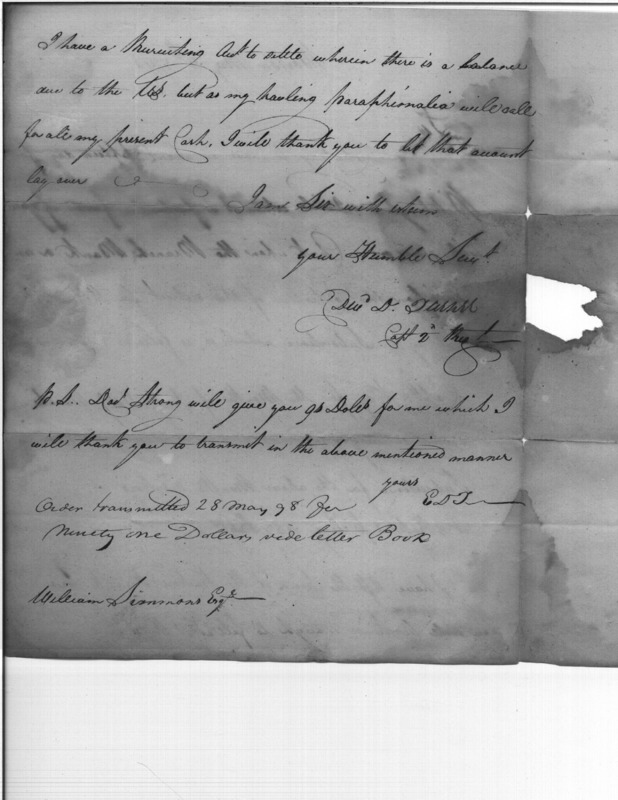 I have a Recruiting Acct to settle wherein there is a balance
due to the US. but as my hauling paraphionalia will call
for all my present Cash, I will thank you to let that account
lay over
I am Sir with esteem
your Humble Servt
Edwd D. Turner
Capt 2d Regt
P.S. Doctr Strong will give you 91 Dolls for me which I
will thank you to transmit in the above mentioned manner
yours
E D T
Order transmitted 28 May 98 for
Ninety one Dollars vide letter Book
William Simmons Esqr